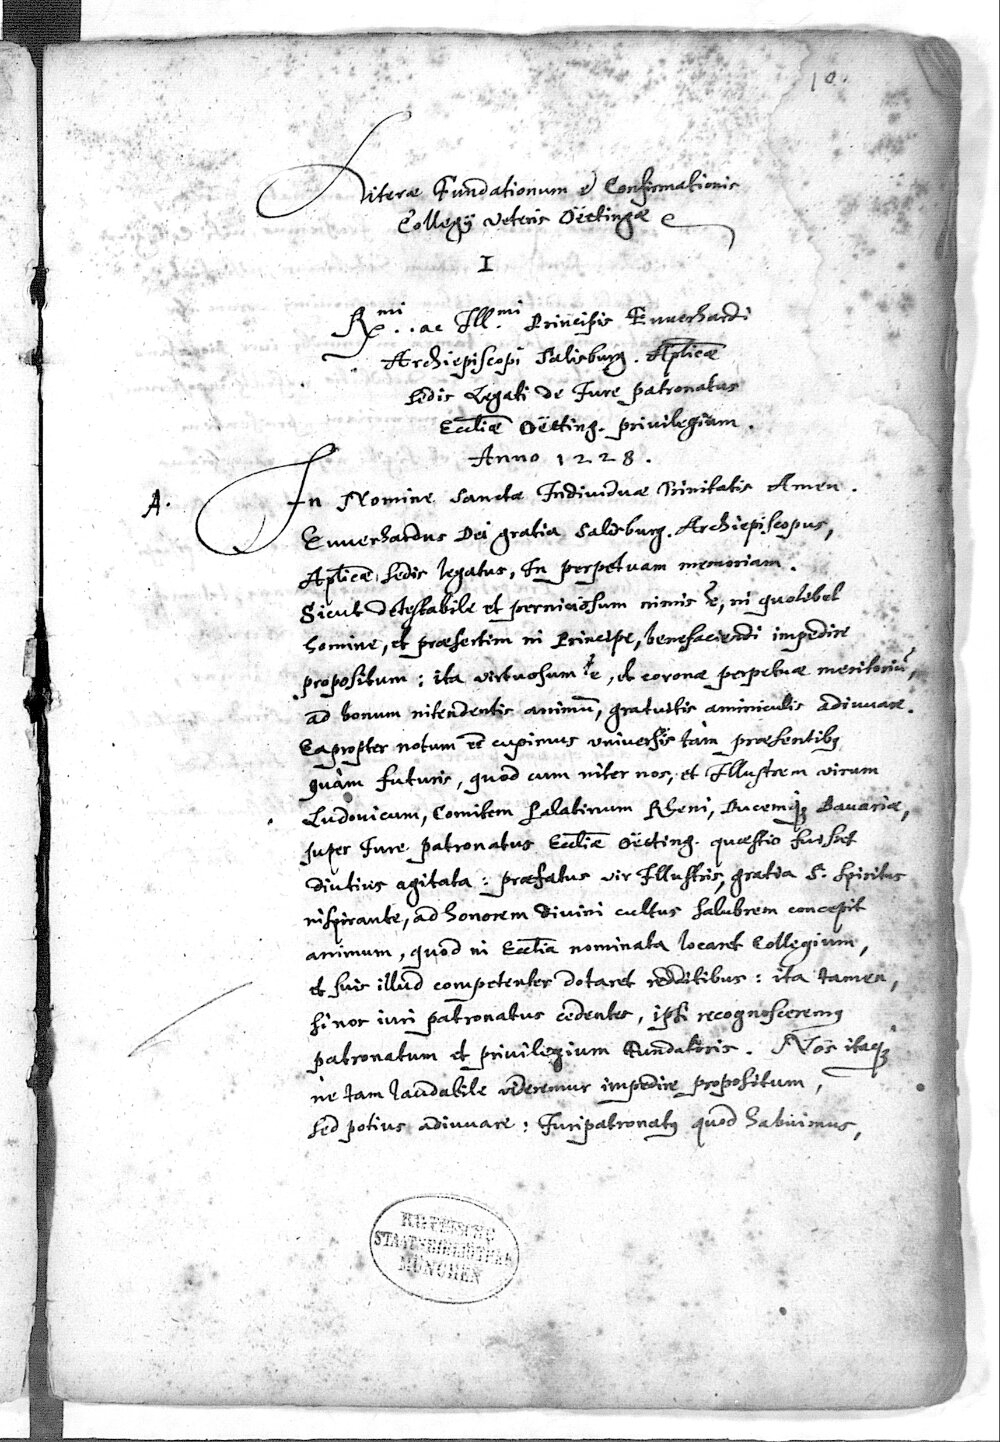 10.
Literæ Fundationum & Confirmationis
Collegÿ Veteris Oëtingæ
I
Rmi.. ac Illmi. Principis Euuerhardi
Archiepiscopi Salisburg. Aplicæ
Sedis Legati de Jure patronatus
Eccliæ Oëtting. privilegium.
Anno 1228.
A. In Nomine Sanctæ Individuæ Trinitatis Amen.
Euuerhardus Dei gratia Salisburg. Archiepiscopus,
Aplicæ Sedis legatus, In perpetuam memoriam.
Sicut detestabile et perniciosum nimis e, in quolibet
homine, et præsertim in Principe, benefaciendi impedire
propositum: ita virtuosum e, et coronæ perpetuæ meritoriũ,
ad bonum nitendentis animũ, gratuitis aminiculis adiuuare.
Eapropter notum eē cupimus vniuersis tàm præsentibq
quàm futuris, quod cum inter nos, et Illustrem virum
Ludovicum, Comitem Palatinum Rheni, Ducemq; Bauariæ,
super Jure patronatus Eccliæ Oëtting. quæstio fuisset
diutius agitata: præfatus vir Illustris, gratia S. Spiritus
inspirante, ad honorem divini cultus salubrem concepit
animum, quod in Ecclia nominata locaret Collegium,
et suis illud competenter dotaret redditibus: ita tamen,
si nos iuri patronatus cedentes, ipsi recognosceremq
patronatum et privilegium Fundatoris. Nos itaq;
ne tam laudabile videremur impedire propositum,
sed potius adiuuare: Juripatronatq quod habuimus,
BAYERISCHE
STAATSBIBLIOTHEK
MÜNCHEN